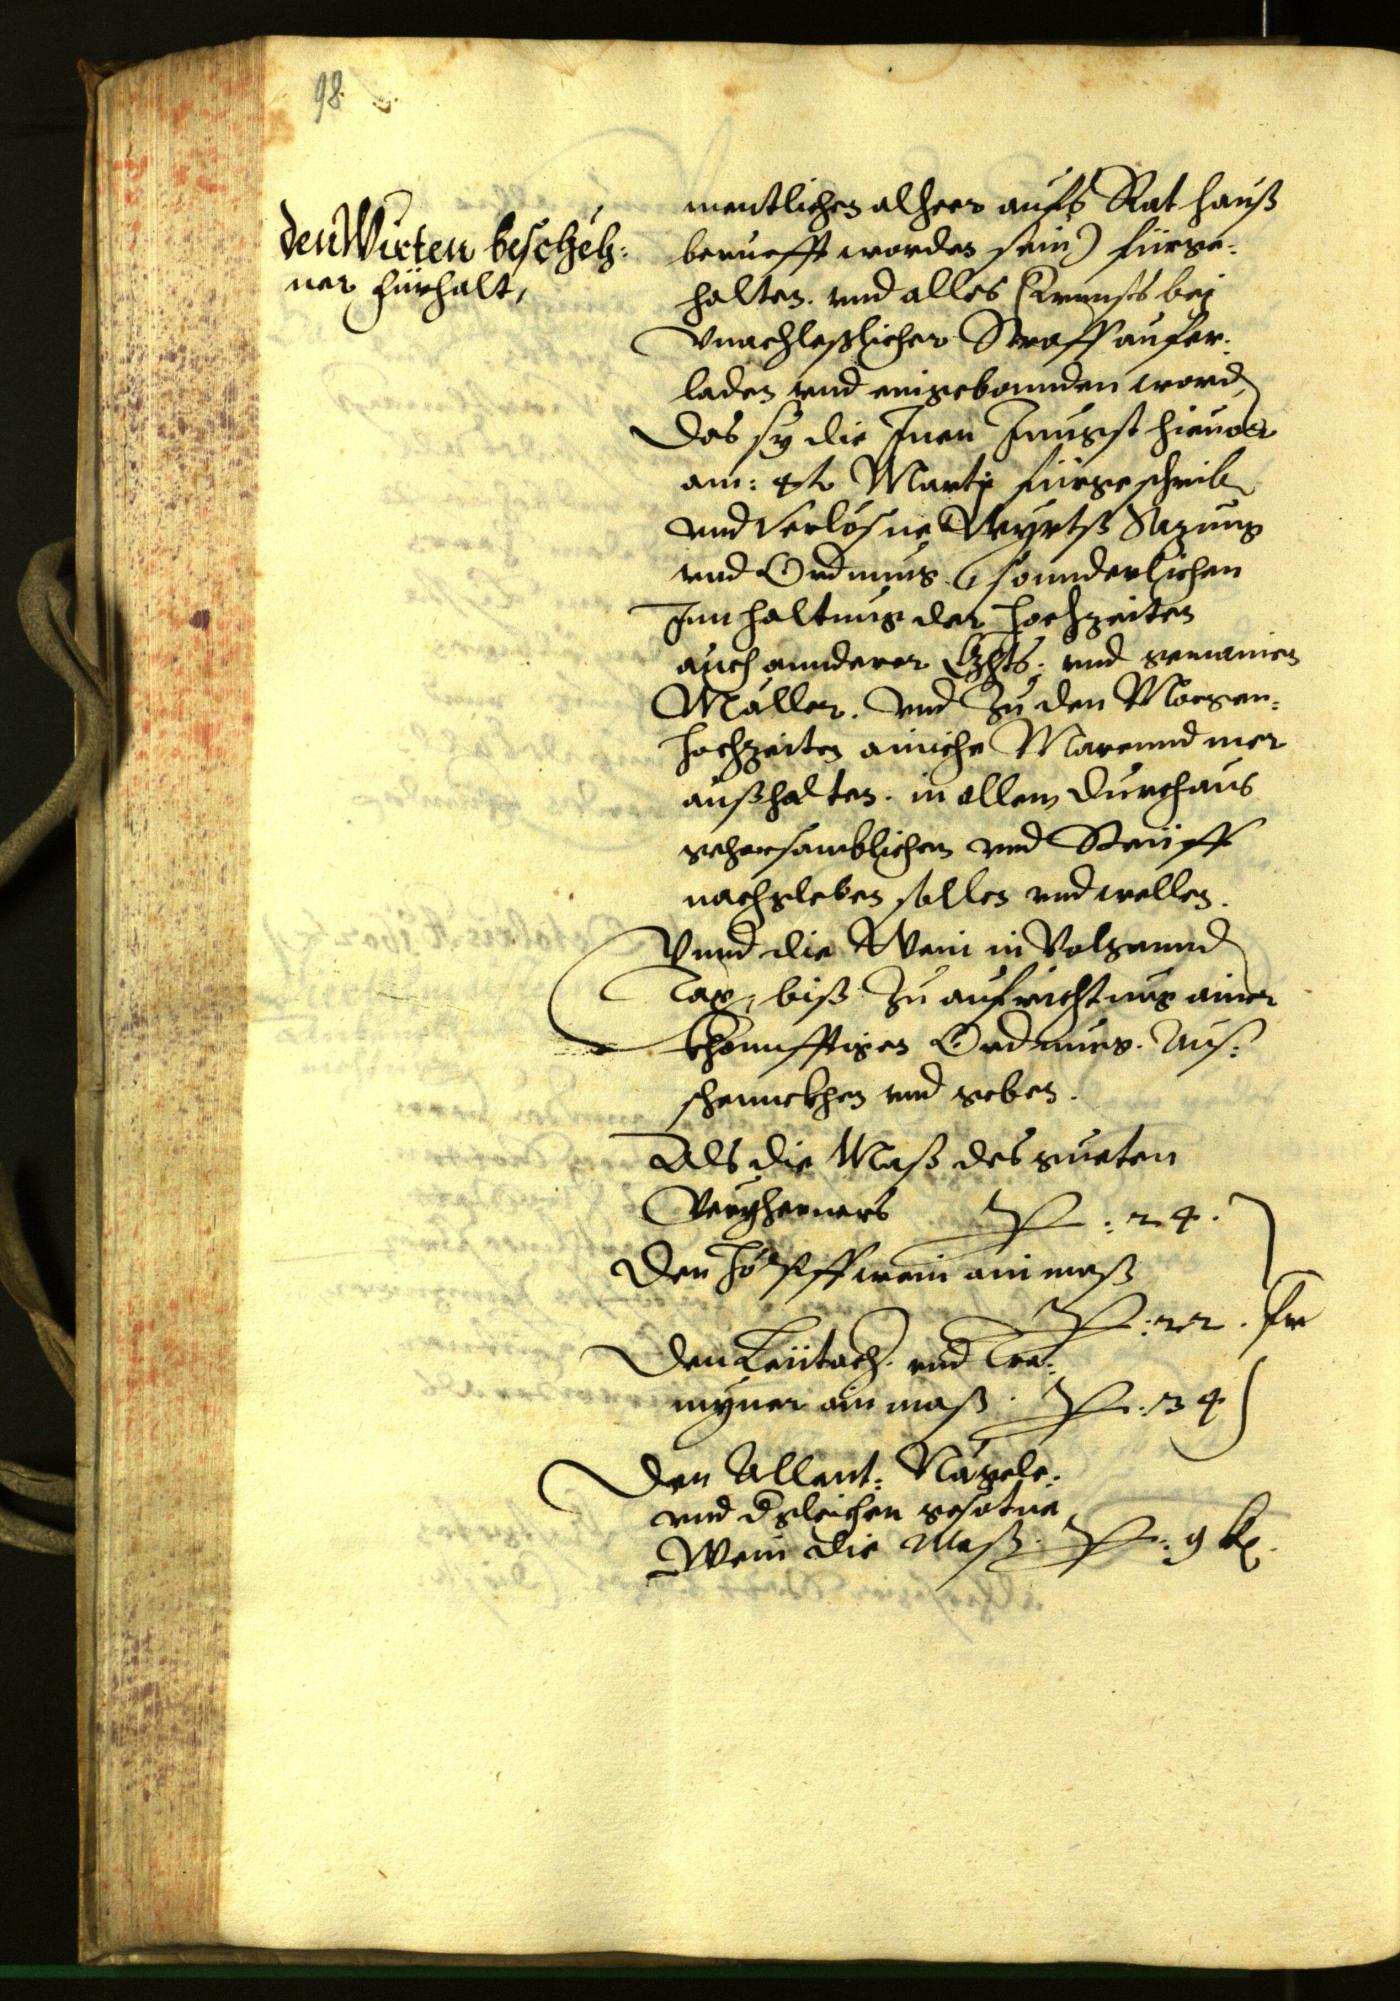 98.
den Wirten beschehˀ:
ner fürhalt,
mentlichen alheer aufs Rat hauß
beruefft worden sein) fürge-
halten. vnd alles Ernnsts bei
vnachleßlicher Straff aufer-
laden vnd eingebounden word
Das sy die Inen Jungst hieuor
am: 4to Martij fürgeschrib
vnd verlösne Wyrtß Sazung
vnd Ordnung sonnderlichen
Inn haltung der Hochzeiten
auch annderer vnd gemainen
Mäller. vnd Zu den Morgen-
hochzeiten ainiche Marennd mer
außhalten. in allem Durchaus
gehorsamblichen vnd Steiff
nachgeleben sollen vnd wellen.
Vnnd die Wein in Volgennd
Tax, biß Zu aufrichtung ainer
khonnfftigen Ordnung. Auß-
schennckhen vnd geben.
Als die Maß des gueten
P: 24.
Den wein ain maß
P: 22. fr
Den Leitach. vnd Tra-
myner ain maß. P: 34
Den Allant: Nägele:
vnd dgleichen gesotne
Wein die Maß. P: 9 kr.